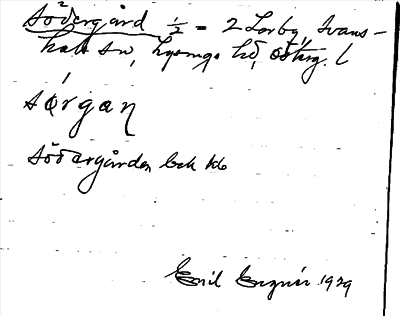 Södergård 1/2 = 2 Torby, Svans-
hals sn, Lysings hd, Östерg. l
sörgaɳ
Södergården bek kb
Emil 1929